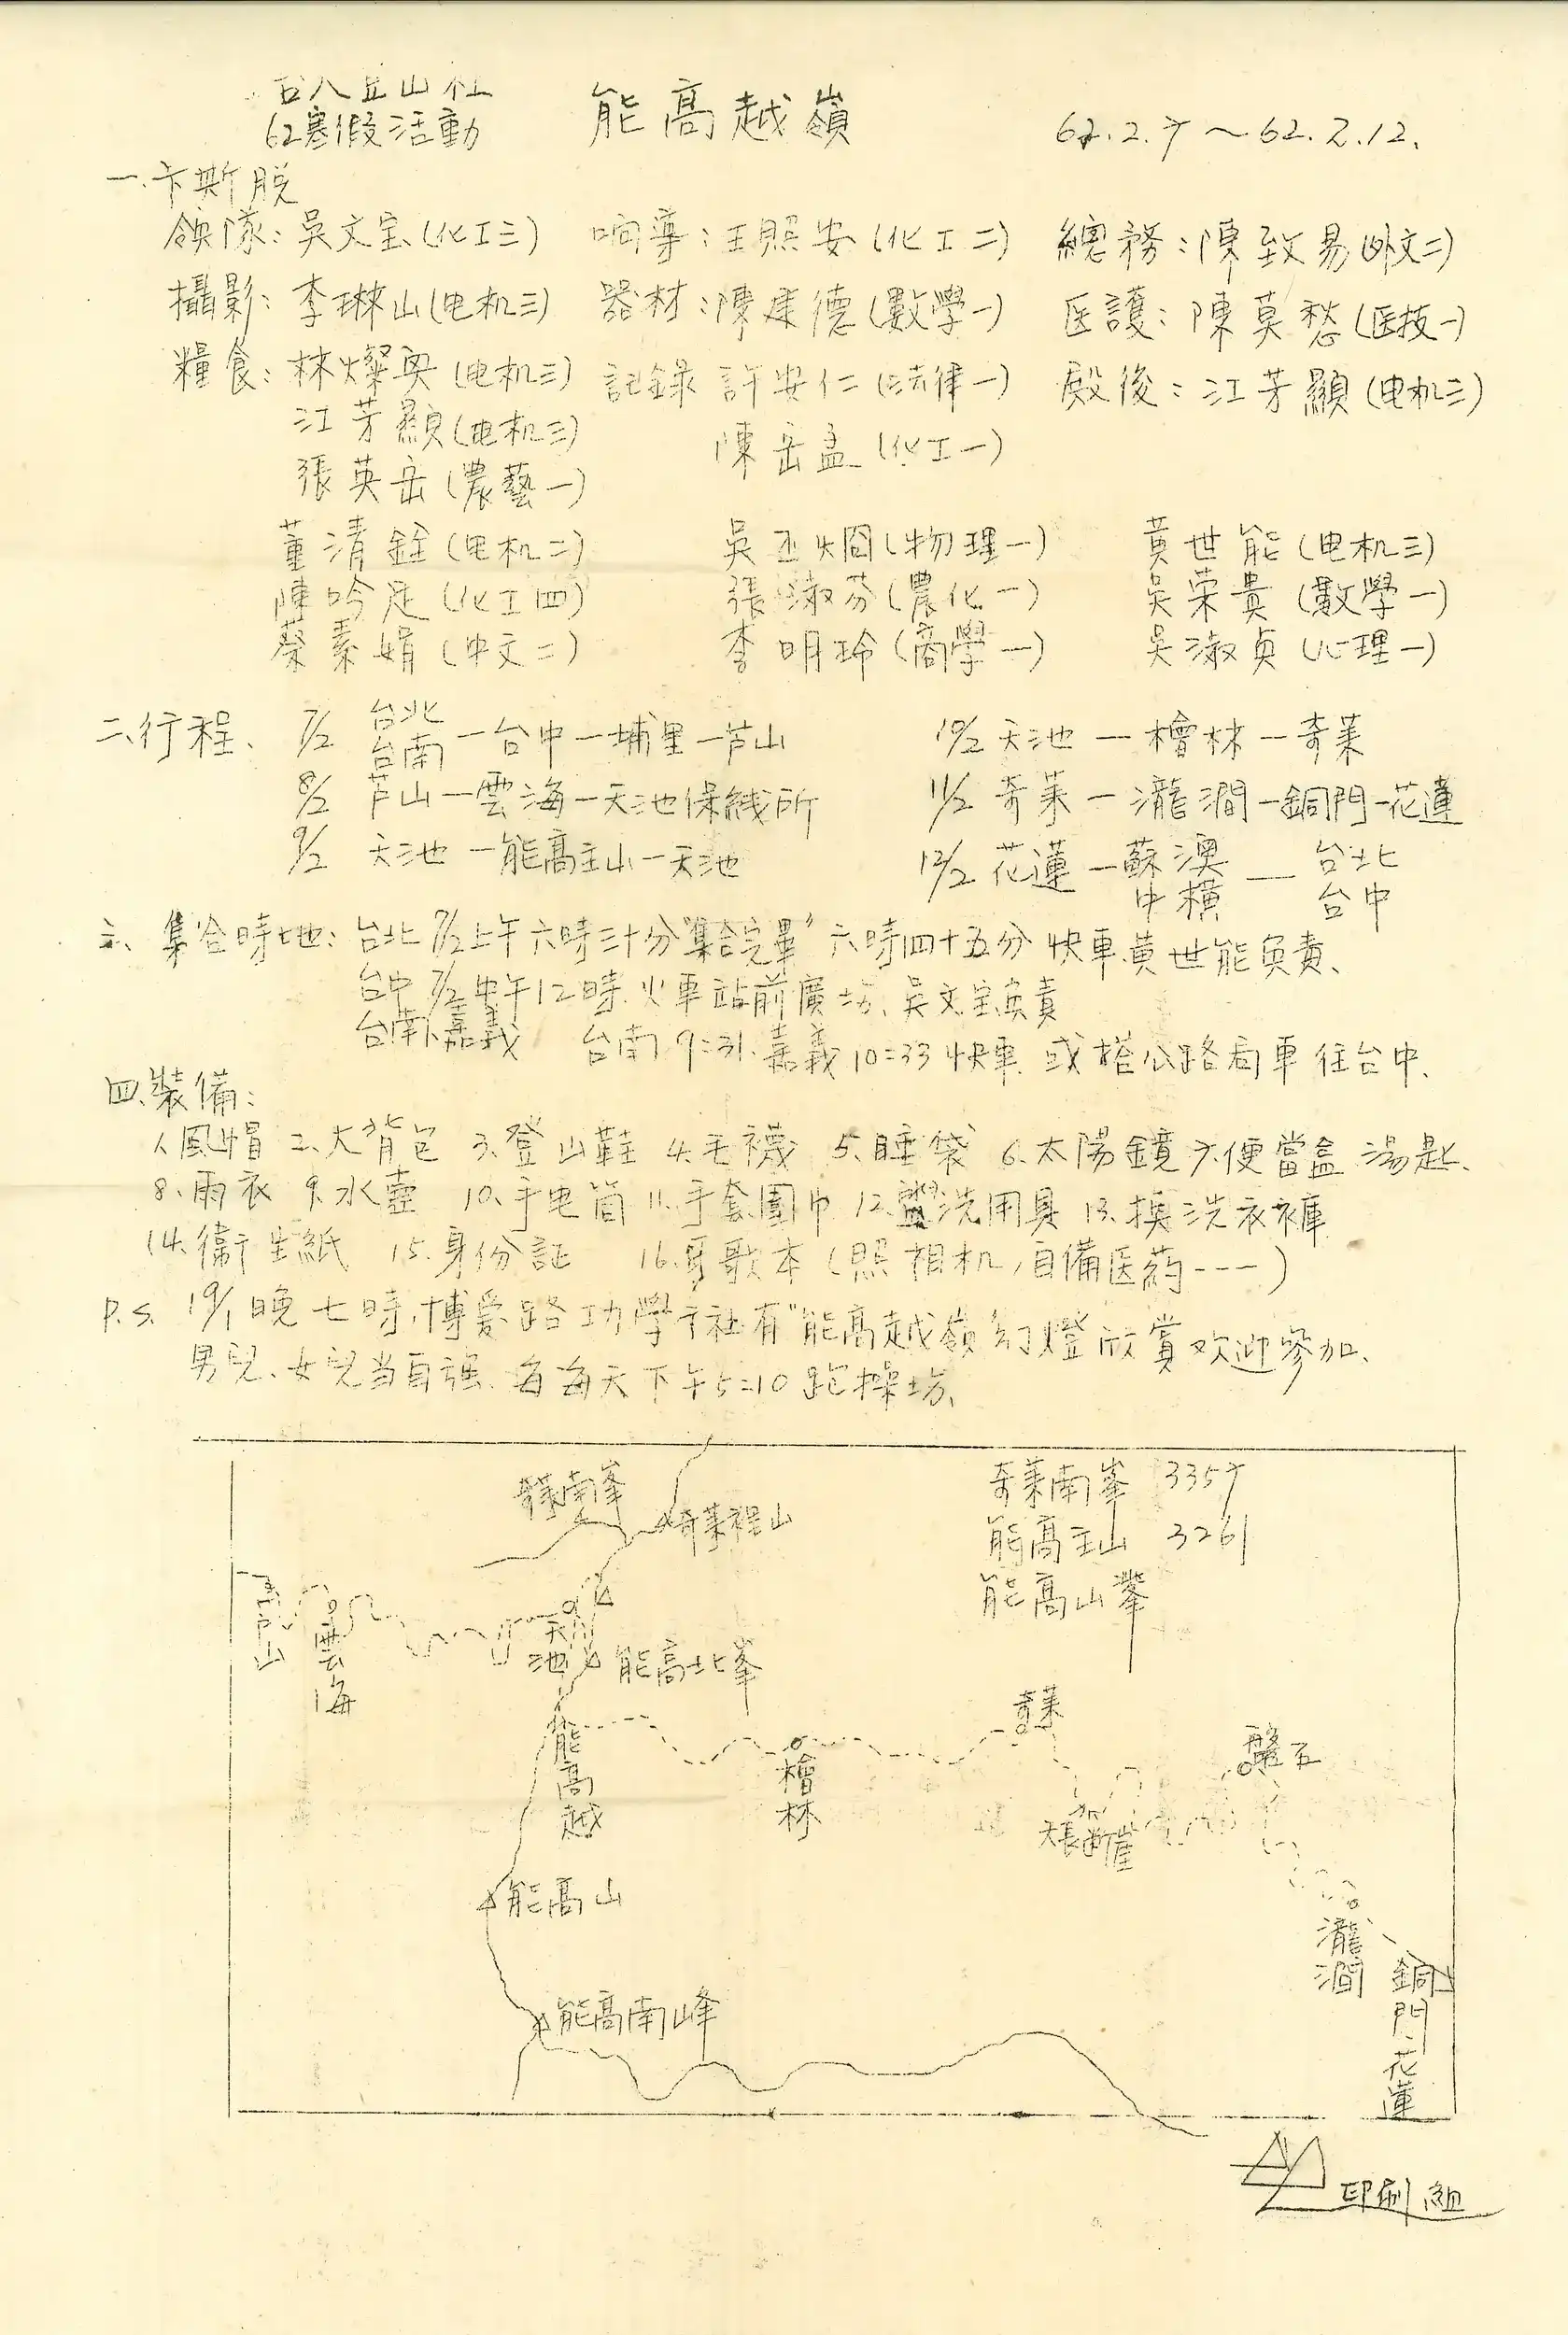 台大登山社
62寒假活動 能高越嶺 62.2.7～62.2.12.
一.卡斯脫
領隊:吳文宝(化工三) 响導:王照安(化工二) 總務:陳致易(外文二)
攝影:李琳山(电机三) 器材:陳建德(數學一) 医護:陳莫愁(医技一)
糧食:林燦(电机三) 記錄 許安仁(法律一) 殿後:江芳顯(电机三)
江芳顯(电机三) 陳岳孟(化工一)
張英岳(農藝一)
董清銓(电机二) 吳丕烱(物理一) 黃世能(电机三)
陳吟足(化工四) 張淑芬(農化一) 吳荣貴(數學一)
蔡素娟(中文二) 李明玲(商學一) 吳淑貞(心理一)
二、行程、 7/2 台北 台南—台中—埔里—芦山 10/2 天池—檜林—奇萊
8/2 芦山—雲海—天池保綫所 11/2 奇萊—瀧澗—銅門—花蓮
9/2 天池—能高主山—天池 12/2 花蓮—蘇澳 中橫—台北 台中
三、集合時地:台北7/2上午六時三十分"集合完畢"六時四十五分快車.黃世能負責、
台中7/2中午12時.火車站前廣場、吳文宝負責
台南、嘉義 台南9:31.嘉義10:33快車.或搭公路局車往台中.
四、裝備:
1.風帽 2.大背包 3.登山鞋 4.毛襪 5.睡袋 6.太陽鏡 7.便當盒 湯匙、
8.雨衣 9.水壺 10.手电筒 11.手套圍巾 12.盥洗用具 13.換洗衣褲
14.衛生紙 15.身份証 16.歌本(照相机,自備医葯---)
P.S. 19/1晚七時,博爱路功學社有"能高越嶺幻燈欣賞欢迎參加、
男兒、女兒当自强、每每天下午5:10跑操場、
奇萊南峯 奇萊南峯 3357
奇萊裡山 能高主山 3261
能高山峯
芦山
雲海
天池
能高北峯
能高越
檜林
奇萊
盤石
天長斷崖
能高山
瀧澗
銅門、花蓮
能高南峰
印刷組